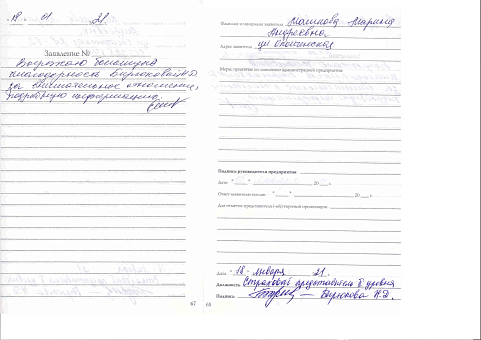 18. 01 21.
Заявление №
Выражаю большую
благодарность Бирюковой Н.Д.
за внимательное отношение,
подробную информацию.
67
Фамилия и инициалы заявителя Маликова Марина
Андреевна
Адрес заявителя ул
Меры, принятые по заявлению администрацией предприятия
Подпись руководителя предприятия
Дата " " 20 г.
Ответ заявителю послан " " 20 г.
Для отметок представителя (-ей) торговой организации
Дата "18" января 21.
Должность Страховой представитель 2 уровня
Подпись — Бирюкова Н.Д.
68